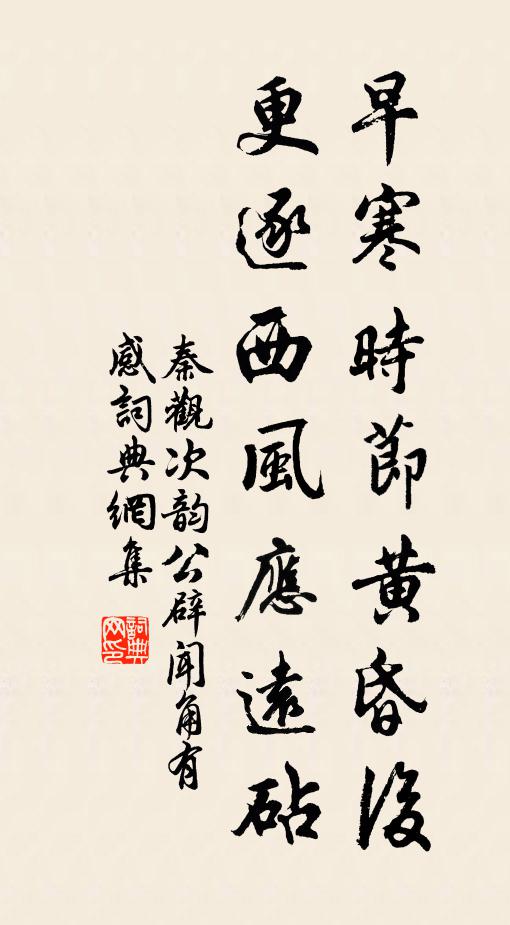 早寒時節黄昏後
更逐西風應遠砧
秦觀次韵公辟聞角有
感詞典網集